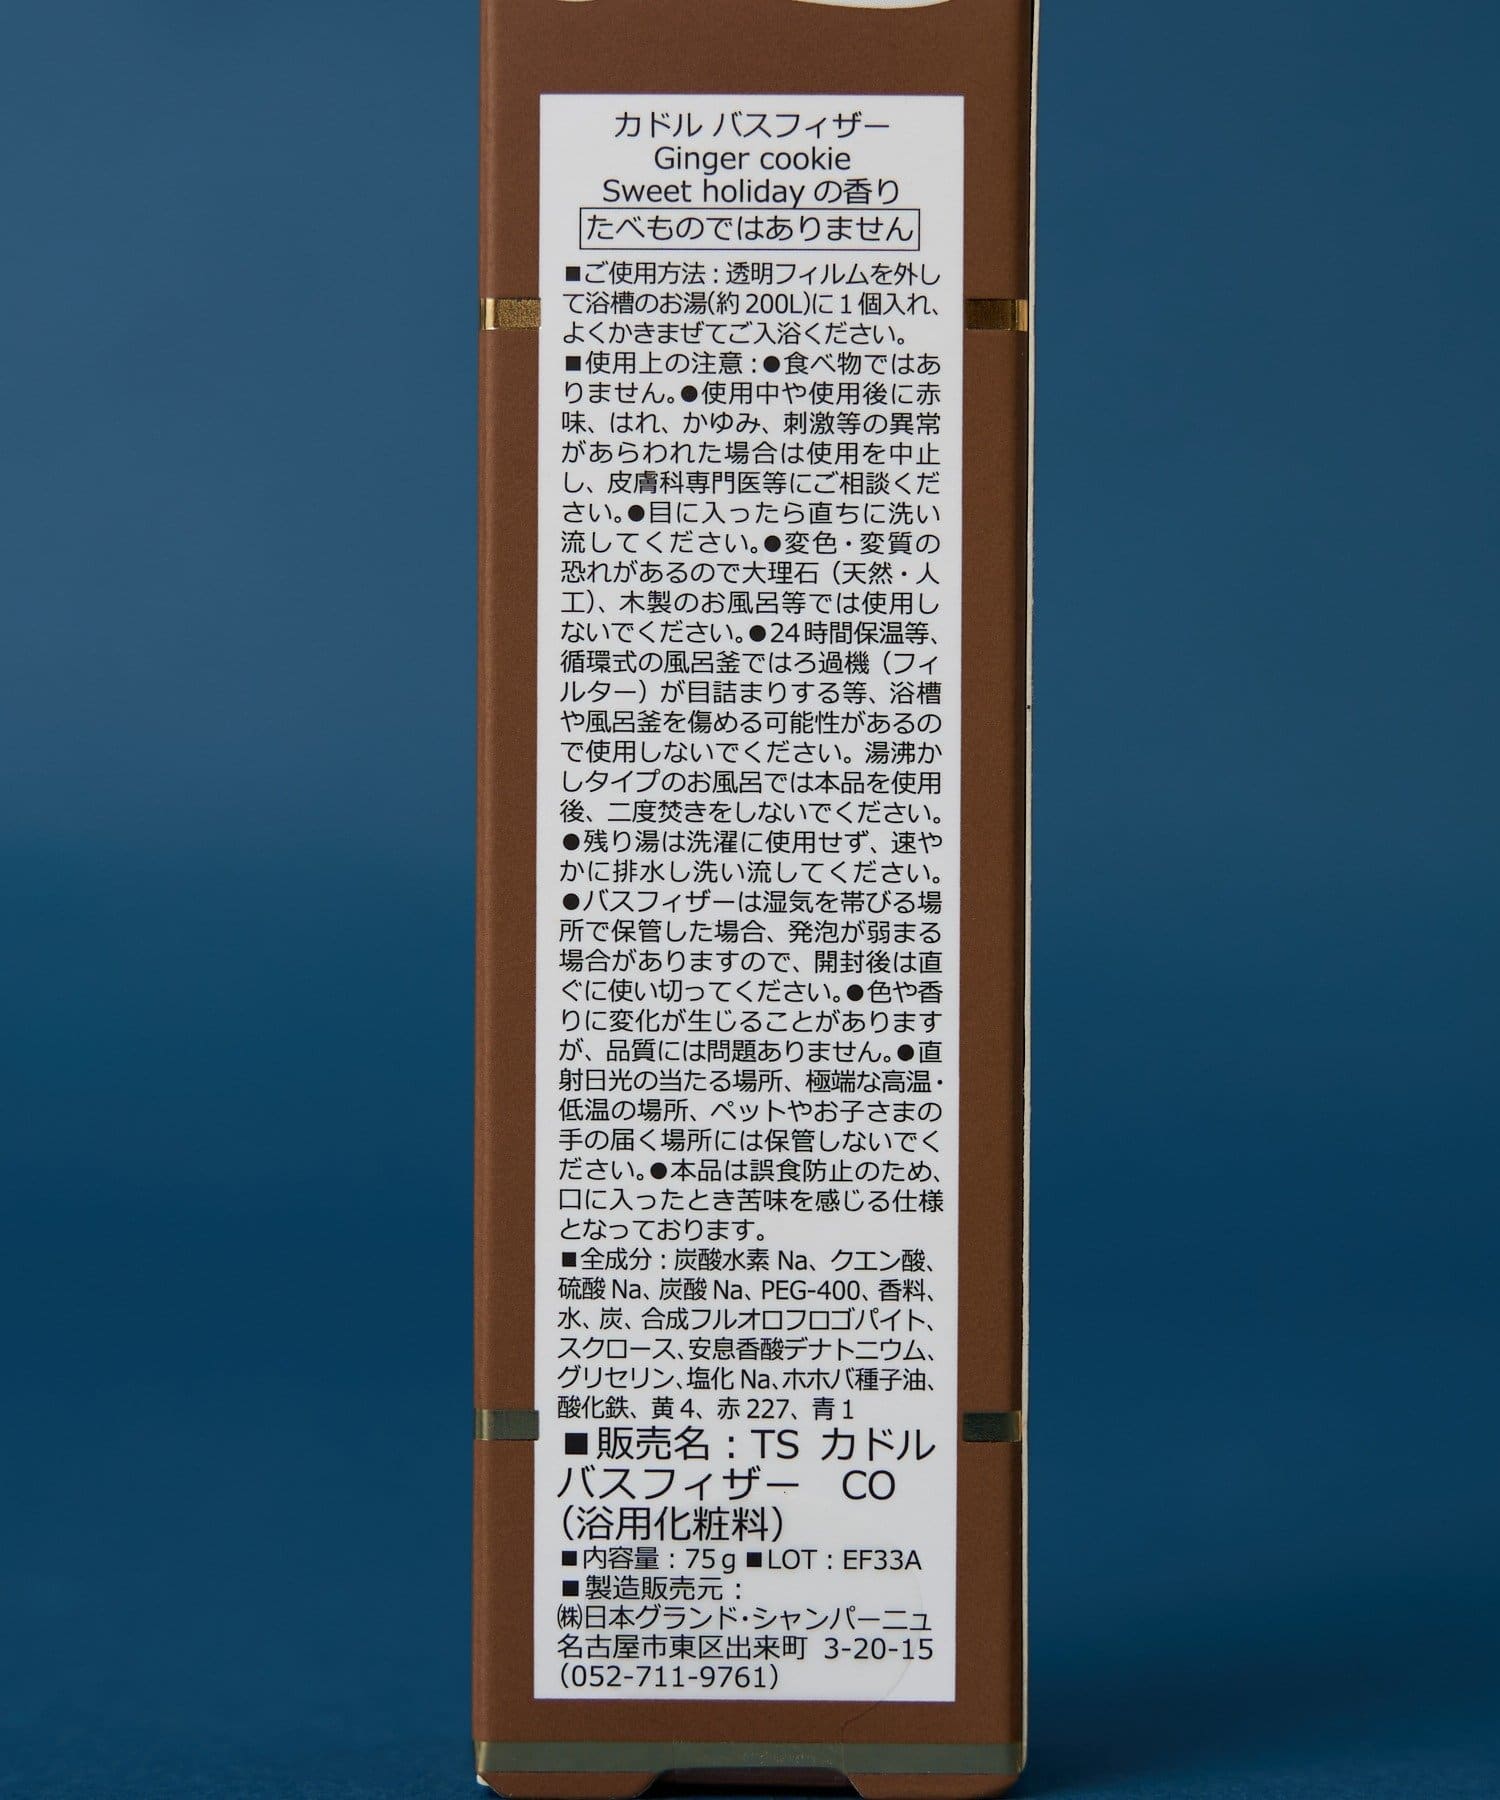 カドル バスフィザー
Ginger cookie
Sweet holiday の香り
たべものではありません
■ご使用方法：透明フィルムを外し
て浴槽のお湯(約200L)に1個入れ、
よくかきまぜてご入浴ください。
■使用上の注意：●食べ物ではあ
りません。●使用中や使用後に赤
味、はれ、かゆみ、刺激等の異常
があらわれた場合は使用を中止
し、皮膚科専門医等にご相談くだ
さい。●目に入ったら直ちに洗い
流してください。●変色・変質の
恐れがあるので大理石（天然・人
工）、木製のお風呂等では使用し
ないでください。●24時間保温等、
循環式の風呂釜ではろ過機（フィ
ルター）が目詰まりする等、浴槽
や風呂釜を傷める可能性があるの
で使用しないでください。湯沸か
しタイプのお風呂では本品を使用
後、二度焚きをしないでください。
●残り湯は洗濯に使用せず、速や
かに排水し洗い流してください。
●バスフィザーは湿気を帯びる場
所で保管した場合、発泡が弱まる
場合がありますので、開封後は直
ぐに使い切ってください。●色や香
りに変化が生じることがあります
が、品質には問題ありません。●直
射日光の当たる場所、極端な高温・
低温の場所、ペットやお子さまの
手の届く場所には保管しないでく
ださい。●本品は誤食防止のため、
口に入ったとき苦味を感じる仕様
となっております。
■全成分：炭酸水素Na、クエン酸、
硫酸Na、炭酸Na、PEG-400、香料、
水、炭、合成フルオロフロゴパイト、
スクロース、安息香酸デナトニウム、
グリセリン、塩化Na、ホホバ種子油、
酸化鉄、黄4、赤227、青1
■販売名：TS カドル
バスフィザー　CO
（浴用化粧料）
■内容量：75g ■LOT：EF33A
■製造販売元：
㈱日本グランド・シャンパーニュ
名古屋市東区出来町 3-20-15
（052-711-9761）